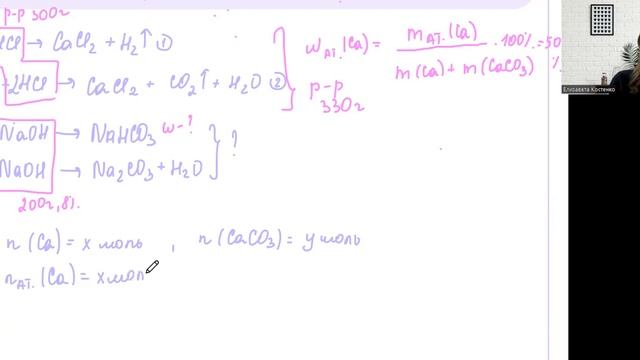 р-р 300г
HCl → CaCl₂ + H₂↑ ①
2HCl → CaCl₂ + CO₂↑ + H₂O ②
wат.(Ca) = mат.(Ca) / m(Ca) + m(CaCO₃) · 100% = 50%
р-р
330г
NaOH → NaHCO₃ w-?
NaOH → Na₂CO₃ + H₂O
?
200г, 8%
n(Ca) = x моль , n(CaCO₃) = y моль
nат.(Ca) = x мол
Елизавета Костенко